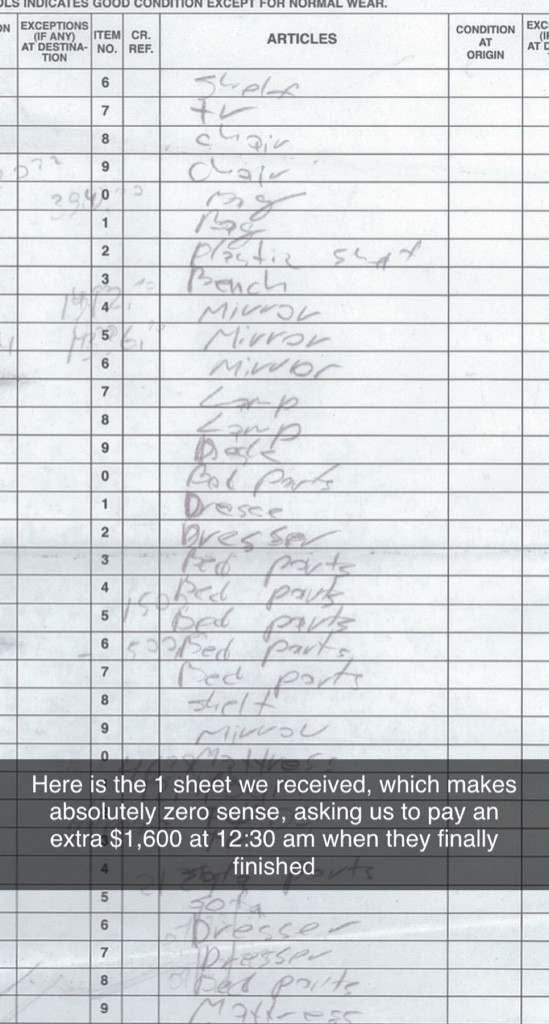 OLS INDICATES GOOD CONDITION EXCEPT FOR NORMAL WEAR.
EXCEPTIONS (IF ANY) AT DESTINA-TION ITEM NO. CR. REF. ARTICLES CONDITION AT ORIGIN
6 Shelf
7 TV
8 chair
9 Chair
0
1 Bag
2 Plastic
3 Bench
4 Mirror
5 Mirror
6 Mirror
7 Lamp
8 Lamp
9
0 Bed parts
1
2 Dresser
3 Bed parts
4 Bed parts
5 Bed parts
6 500 Bed parts
7 Bed parts
8 shelf
9 Mirror
0 Mattress
Here is the 1 sheet we received, which makes
absolutely zero sense, asking us to pay an
extra $1,600 at 12:30 am when they finally
finished
4 parts
5 sofa
6 Dresser
7 Dresser
8 Bed parts
9 Mattress